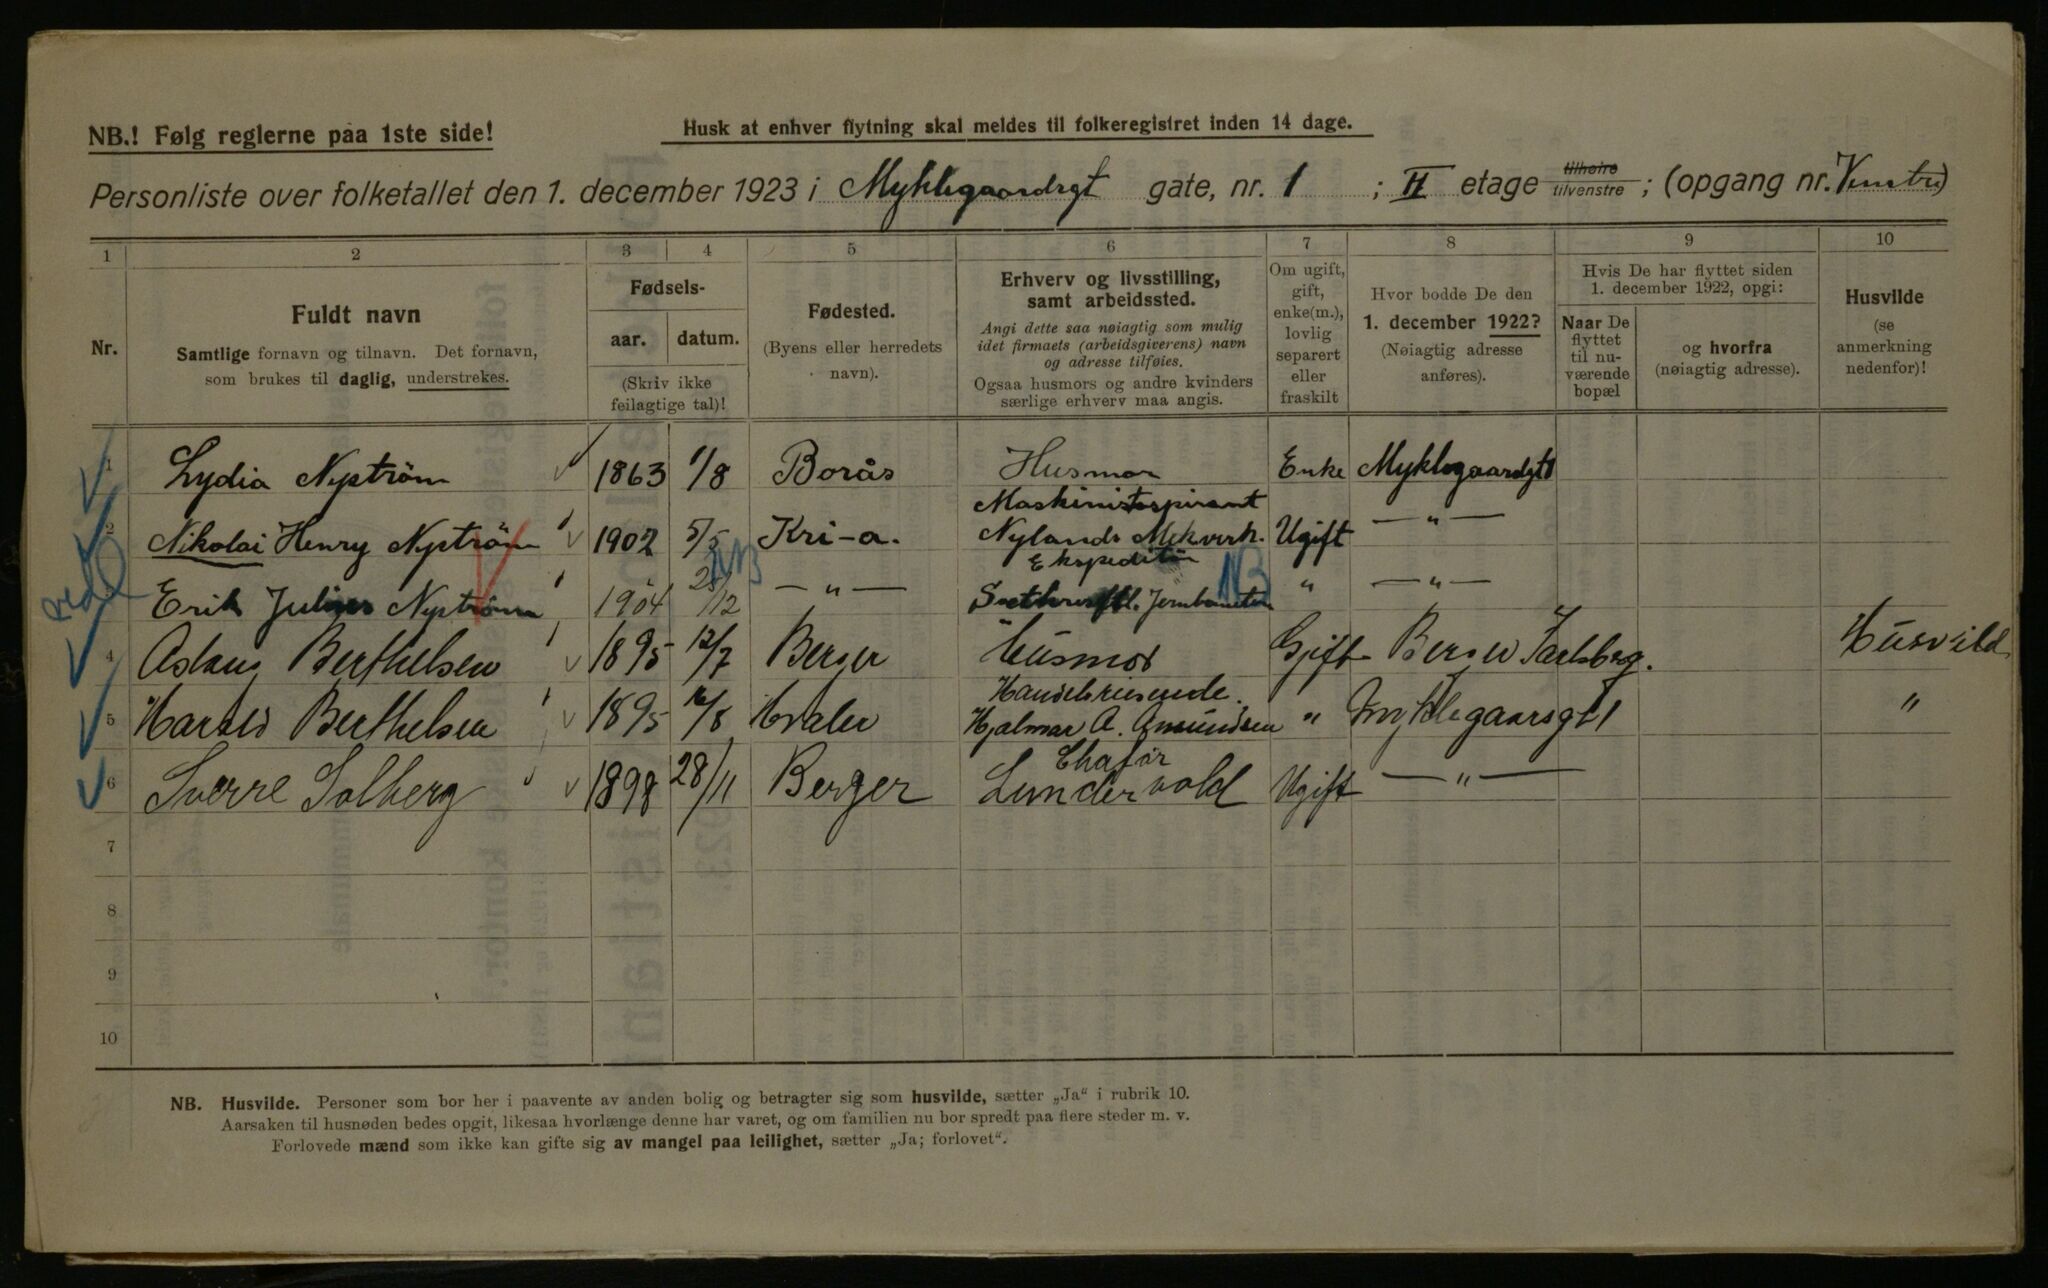 NB.! Følg reglerne paa 1ste side!
Husk at enhver flytning skal meldes til folkeregistret inden 14 dage.
Personliste over folketallet den 1. december 1923 i Myklegaardsgt gate, nr. 1 ; II etage tilhøire tilvenstre ; (opgang nr. Venstre)
1 2 3 4 5 6 7 8 9 10
Nr.
Fuldt navn
Samtlige fornavn og tilnavn. Det fornavn,
som brukes til daglig, understrekes.
Fødsels-
aar. datum.
(Skriv ikke
feilagtige tal)!
Fødested.
(Byens eller herredets
navn).
Erhverv og livsstilling,
samt arbeidssted.
Angi dette saa nøiagtig som mulig
idet firmaets (arbeidsgiverens) navn
og adresse tilføies.
Ogsaa husmors og andre kvinders
særlige erhverv maa angis.
Om ugift,
gift,
enke(m.),
lovlig
separert
eller
fraskilt
Hvor bodde De den
1. december 1922?
(Nøiagtig adresse
anføres).
Hvis De har flyttet siden
1. december 1922, opgi:
Naar De
flyttet
til nu-
værende
bopæl
og hvorfra
(nøiagtig adresse).
Husvilde
(se
anmerkning
nedenfor)!
1 Lydia Nyström 1863 1/8 Borås Husmor Enke Myklegaardgt 1
Maskinistaspirant
2 Nikolai Henry Nyström 1902 5/5 Kri-a. Nylands Mekverk. Ugift — " —
Ekspeditör
NB NB
Erik Julius Nyström 1904 /12 — " — Jernbaneten " — " —
4 Aslaug Berthelsen 1895 12/7 Berger Husmor Gift Berger Jarlsberg. Husvild
Handelsreisende.
5 Harald Berthelsen 1895 16/8 Hvaler Hjalmar A. Amundsen " Myklegaarsgt 1 "
Chafør
6 Sverre Solberg 1898 28/11 Berger Lundervold Ugift — " —
7
8
9
10
NB. Husvilde. Personer som bor her i paavente av anden bolig og betragter sig som husvilde, sætter „Ja“ i rubrik 10.
Aarsaken til husnøden bedes opgit, likesaa hvorlænge denne har varet, og om familien nu bor spredt paa flere steder m. v.
Forlovede mænd som ikke kan gifte sig av mangel paa leilighet, sætter „Ja; forlovet“.